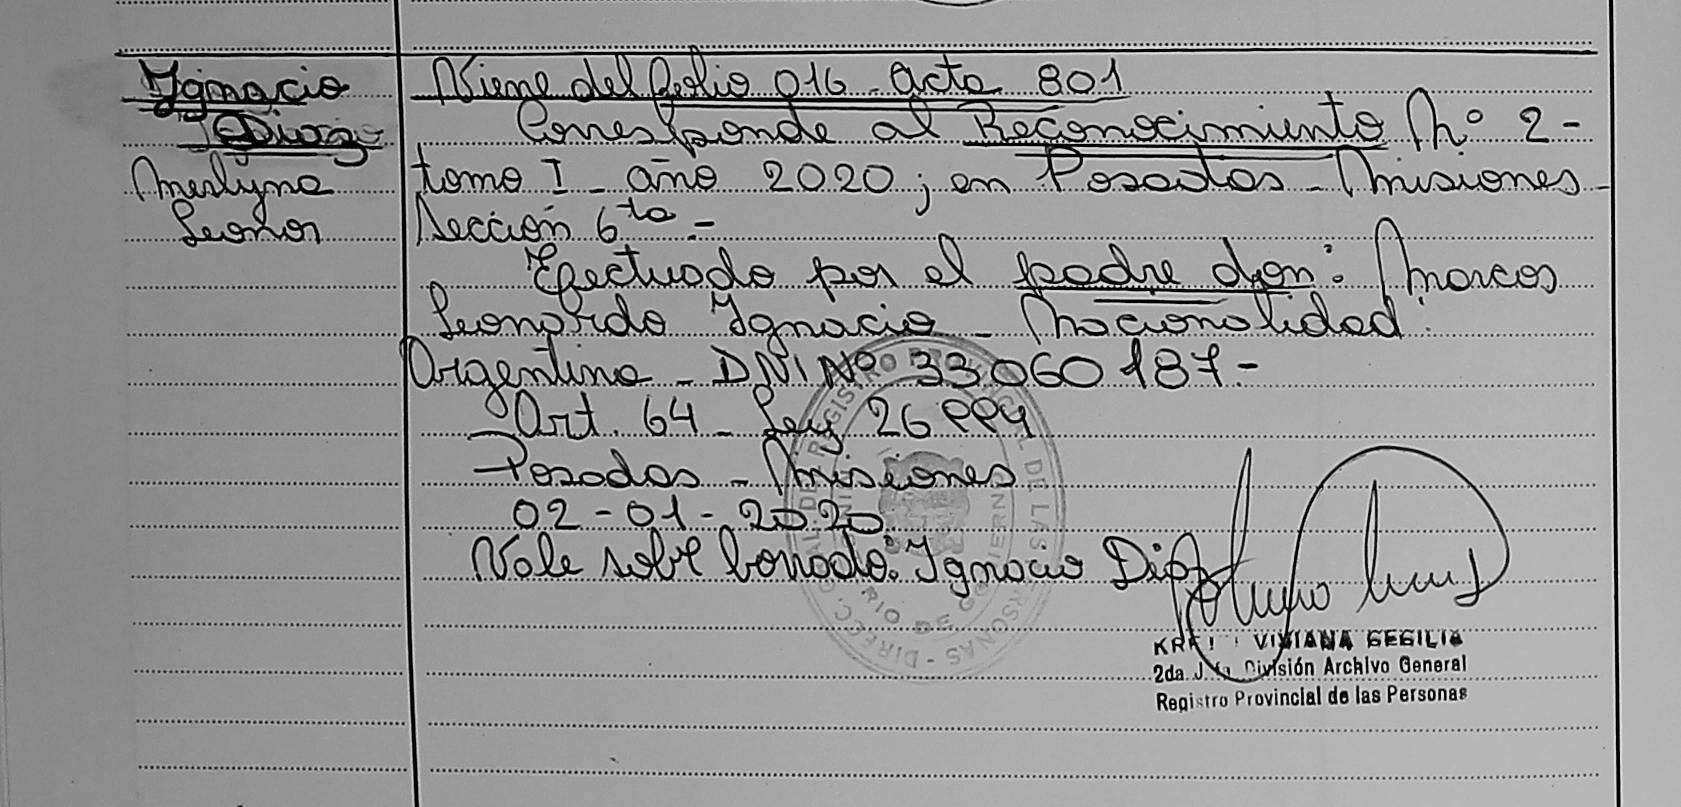 Ignacio
Diaz
Merlyna
Leonor
Viene del folio 016 - acta 801
Corresponde al Reconocimiento Nº 2 -
tomo I - año 2020; en Posadas - Misiones -
Sección 6ta. -
Efectuado por el padre don: Marcos
Leonardo Ignacio - Nacionalidad:
Argentino - DNI Nº 33060187. -
Art. 64 - Ley 26994
Posadas - Misiones
02 - 01 - 2020
Vale sobre borrado: Ignacio Diaz
VIVIANA CECILIA
2da. División Archivo General
Registro Provincial de las Personas